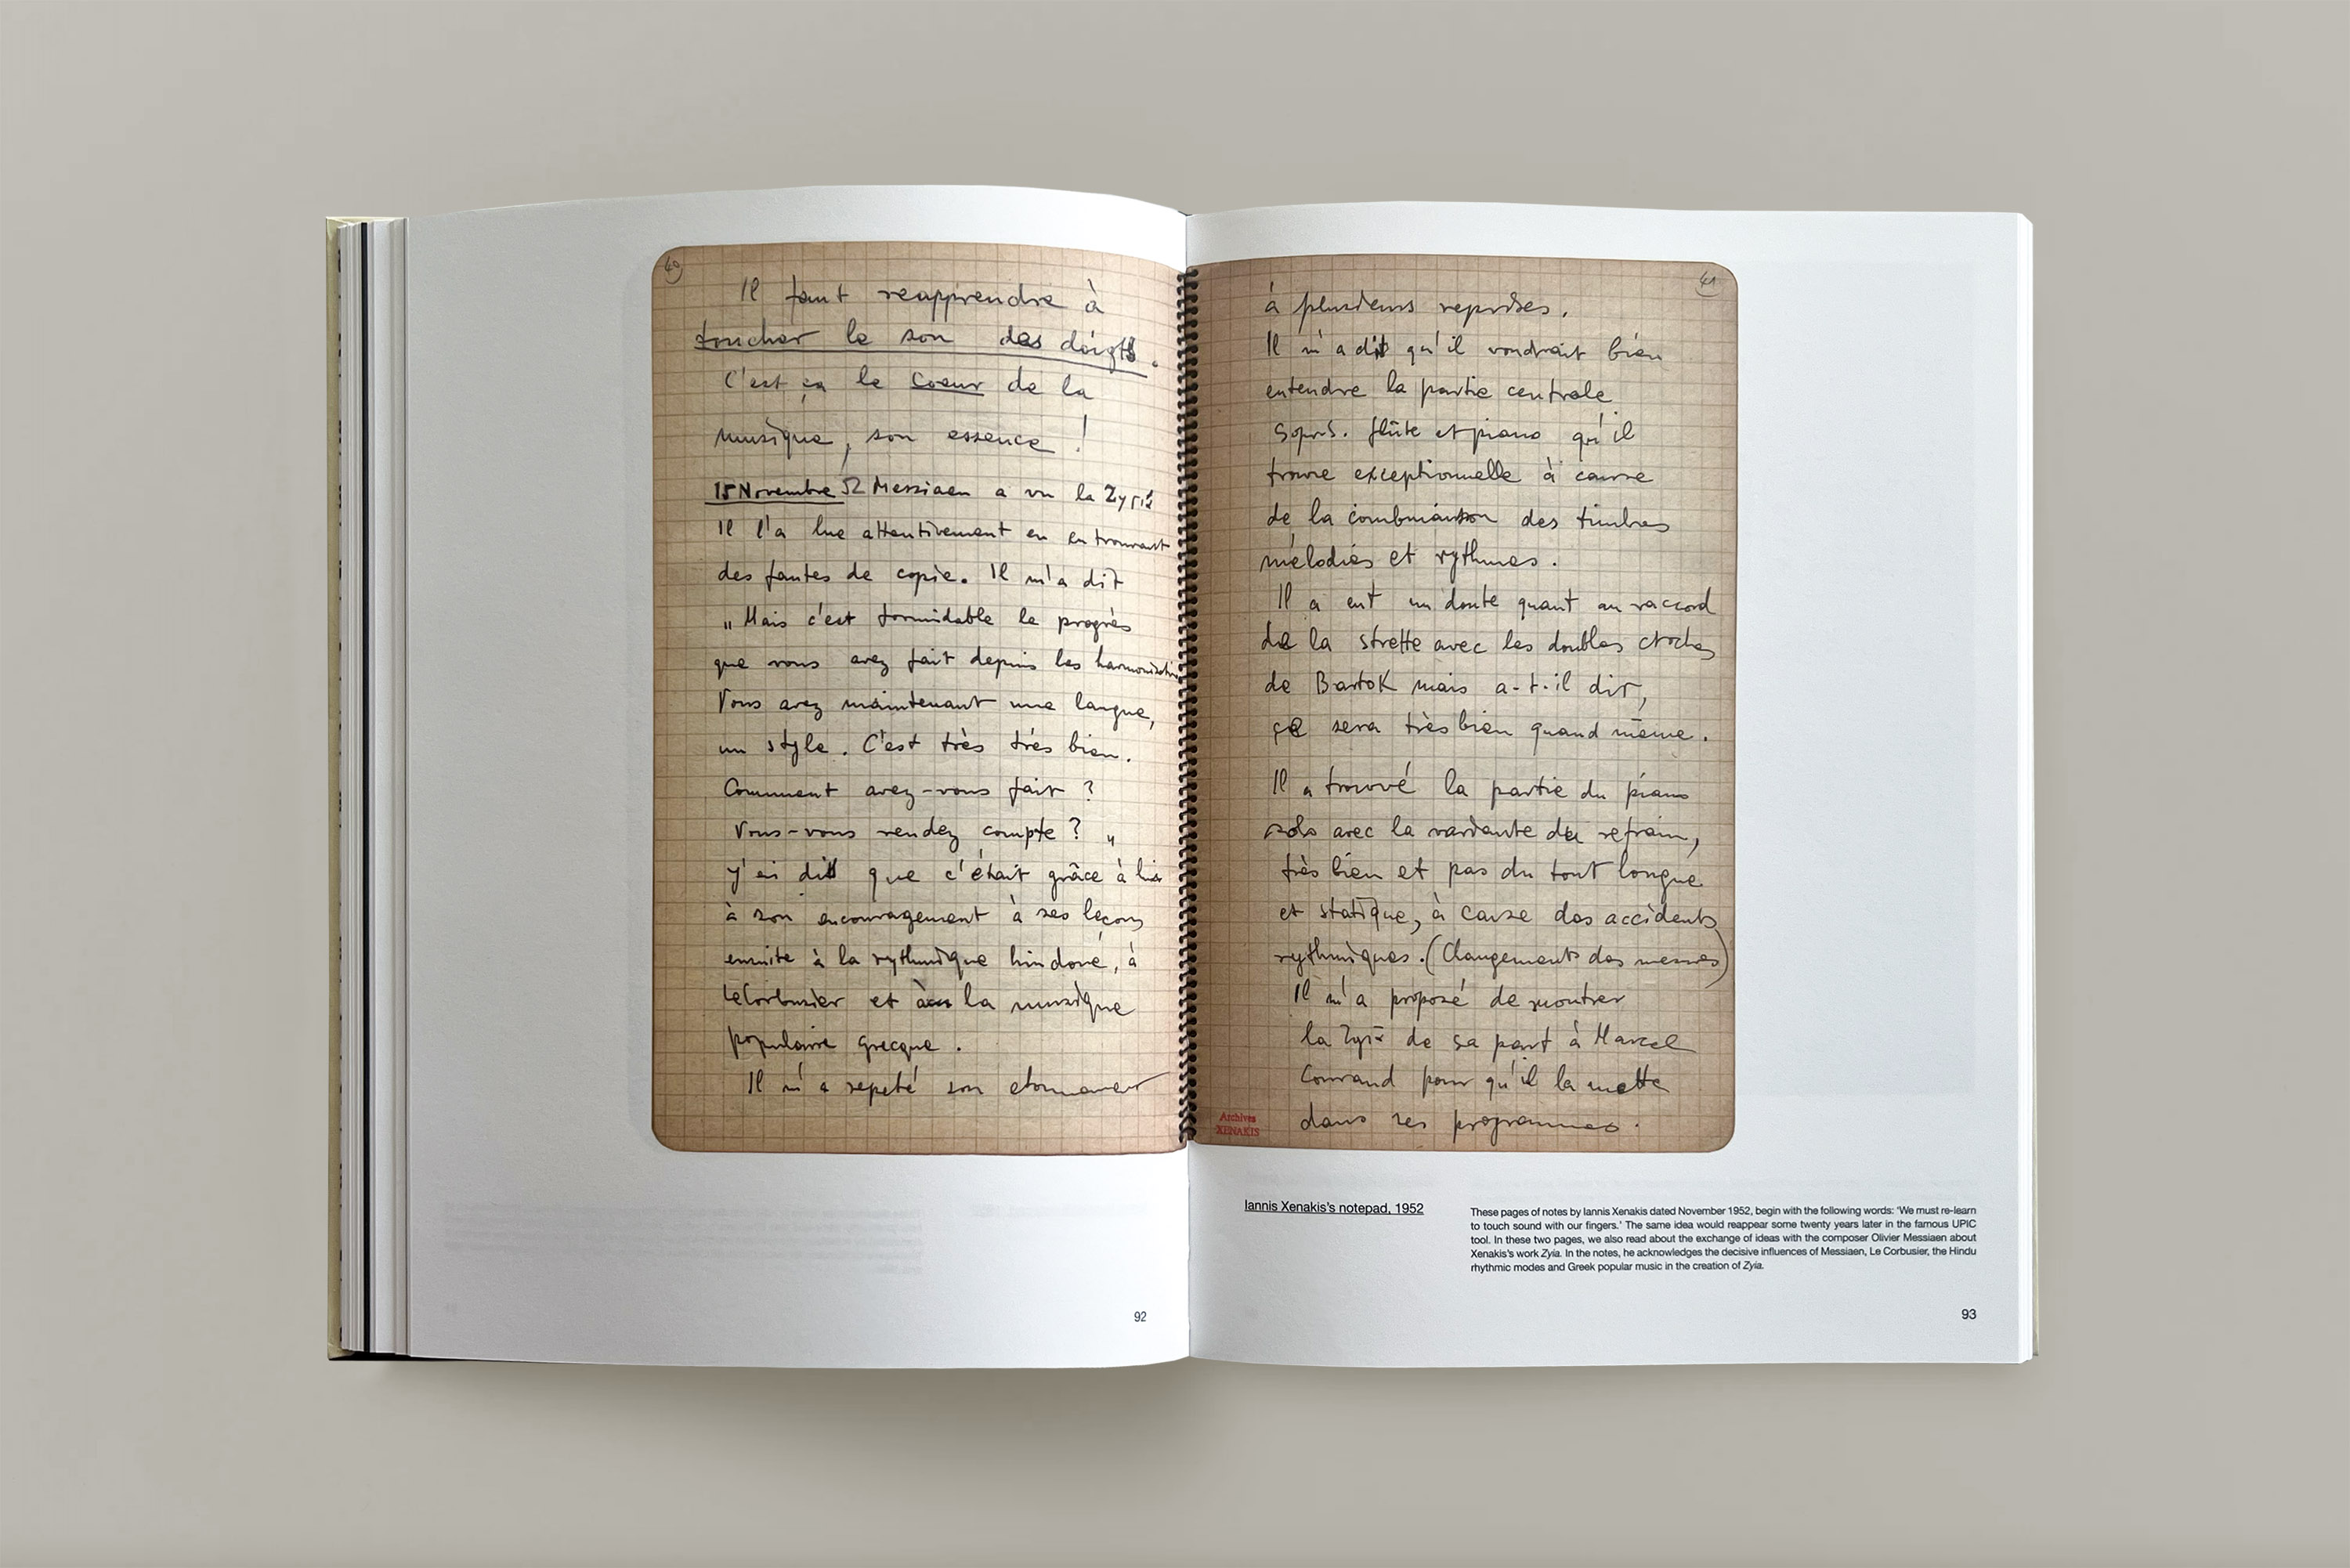 40
Il faut reapprendre à
toucher le son des doigts.
C'est ça le coeur de la
musique, son essence !
15 Novembre 52 Messiaen a vu la Zyia
Il l'a lue attentivement en en trouvant
des fautes de copie. Il m'a dit
„Mais c'est formidable le progrès
que vous avez fait depuis les
Vous avez maintenant une langue,
un style. C'est très très bien.
Comment avez-vous fait ?
Vous-vous rendez compte ? "
J'ai dit que c'était grâce à lui
à son encouragement à ses leçons
ensuite à la rythmique hindoue, à
LeCorbusier et à la musique
populaire grecque.
Il m'a repeté son etonnement
41
à plusieurs reprises.
Il m'a dit qu'il voudrait bien
entendre la partie centrale
flûte et piano qu'il
trouve exceptionnelle à cause
de la combinaison des timbres
mélodies et rythmes.
Il a eut un doute quant au raccord
de la strette avec les doubles croches
de Bartok mais a-t-il dit,
ça sera très bien quand même.
Il a trouvé la partie du piano
solo avec la variante du refrain,
très bien et pas du tout longue
et statique, à cause des accidents
rythmiques. (Changements des mesures)
Il m'a proposé de montrer
la Zyia de sa part à Marcel
Couraud pour qu'il la mette
dans ses programmes.
Archives
XENAKIS
Iannis Xenakis's notepad, 1952
These pages of notes by Iannis Xenakis dated November 1952, begin with the following words: 'We must re-learn
to touch sound with our fingers.' The same idea would reappear some twenty years later in the famous UPIC
tool. In these two pages, we also read about the exchange of ideas with the composer Olivier Messiaen about
Xenakis's work Zyia. In the notes, he acknowledges the decisive influences of Messiaen, Le Corbusier, the Hindu
rhythmic modes and Greek popular music in the creation of Zyia.
92
93